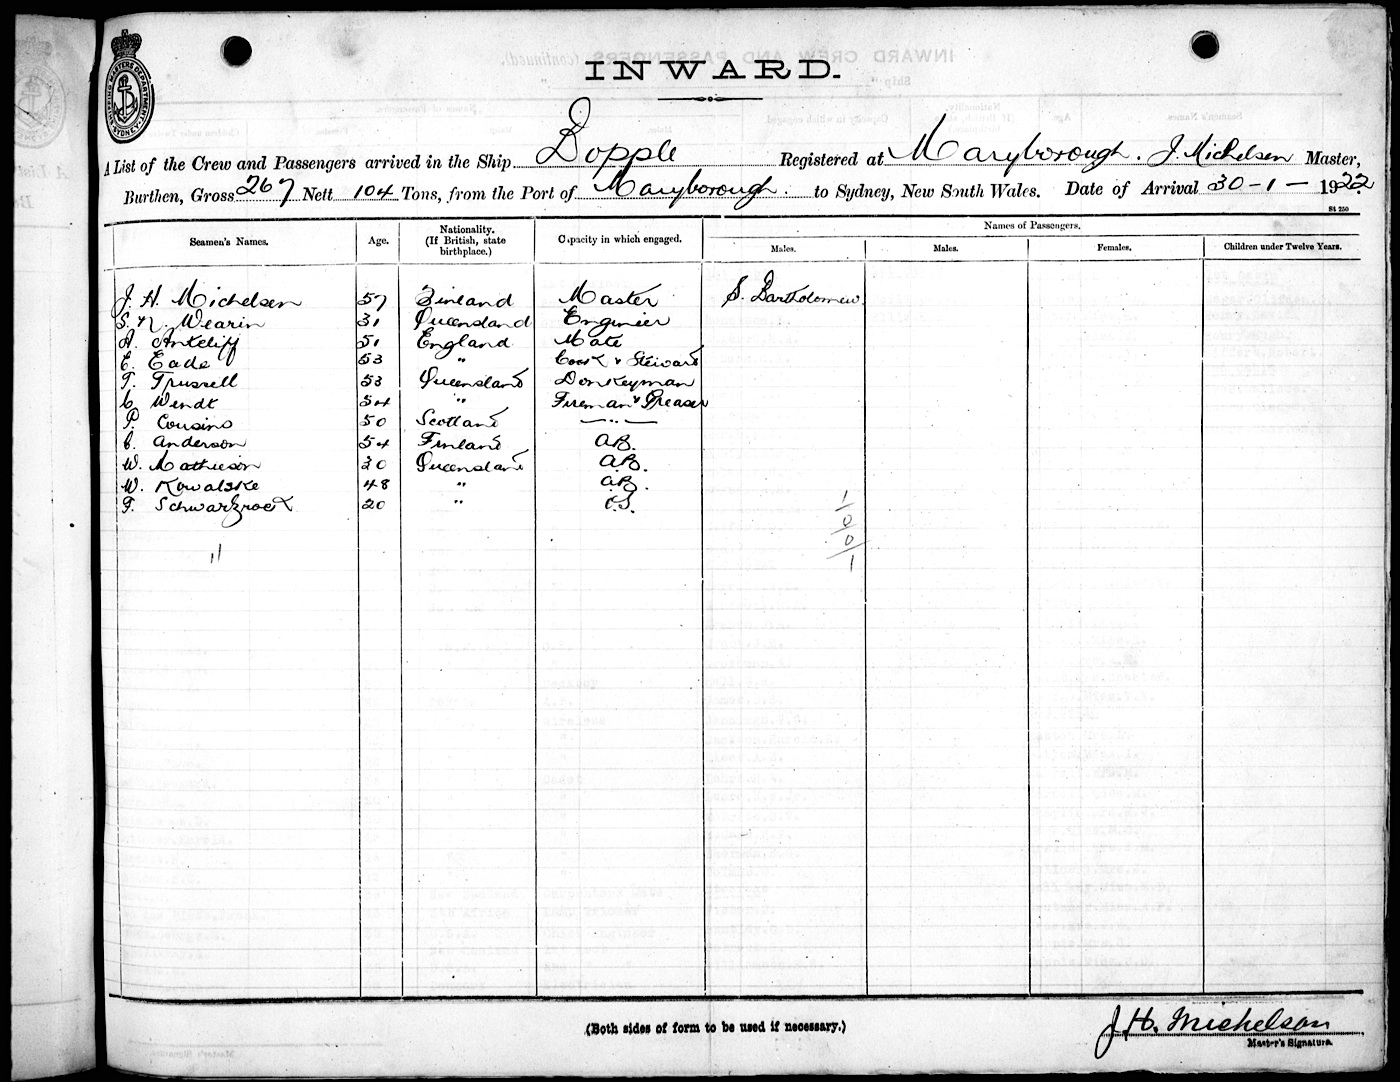 SHIPPING MASTERS DEPARTMENT SYDNEY
INWARD.
A List of the Crew and Passengers arrived in the Ship Dopple Registered at Maryborough. J. Michelsen Master,
Burthen, Gross 267 Nett 104 Tons, from the Port of Maryborough. to Sydney, New South Wales. Date of Arrival 30-1-1922
St 250
Seamen's Names. Age. Nationality. (If British, state birthplace.) Capacity in which engaged. Names of Passengers.
Males. Males. Females. Children under Twelve Years.
J. H. Michelsen 57 Finland Master S. Bartholomew
S. N. Wearin 31 Queensland Engineer
A. Antcliff 51 England Mate
E. Eade 53 " Cook & Steward
T. Trussell 53 Queensland Donkeyman
C Wendt 54 " Fireman & Greaser
P. Cousins 50 Scotland — " —
C. Anderson 54 Finland A.B.
W. Mathieson 20 Queensland A.B.
W. Kowalske 48 " A.B.
F. Schwarzrock 20 " O.S.
1
0
0
1
11
(Both sides of form to be used if necessary.)
J H. Michelson
Master's Signature.